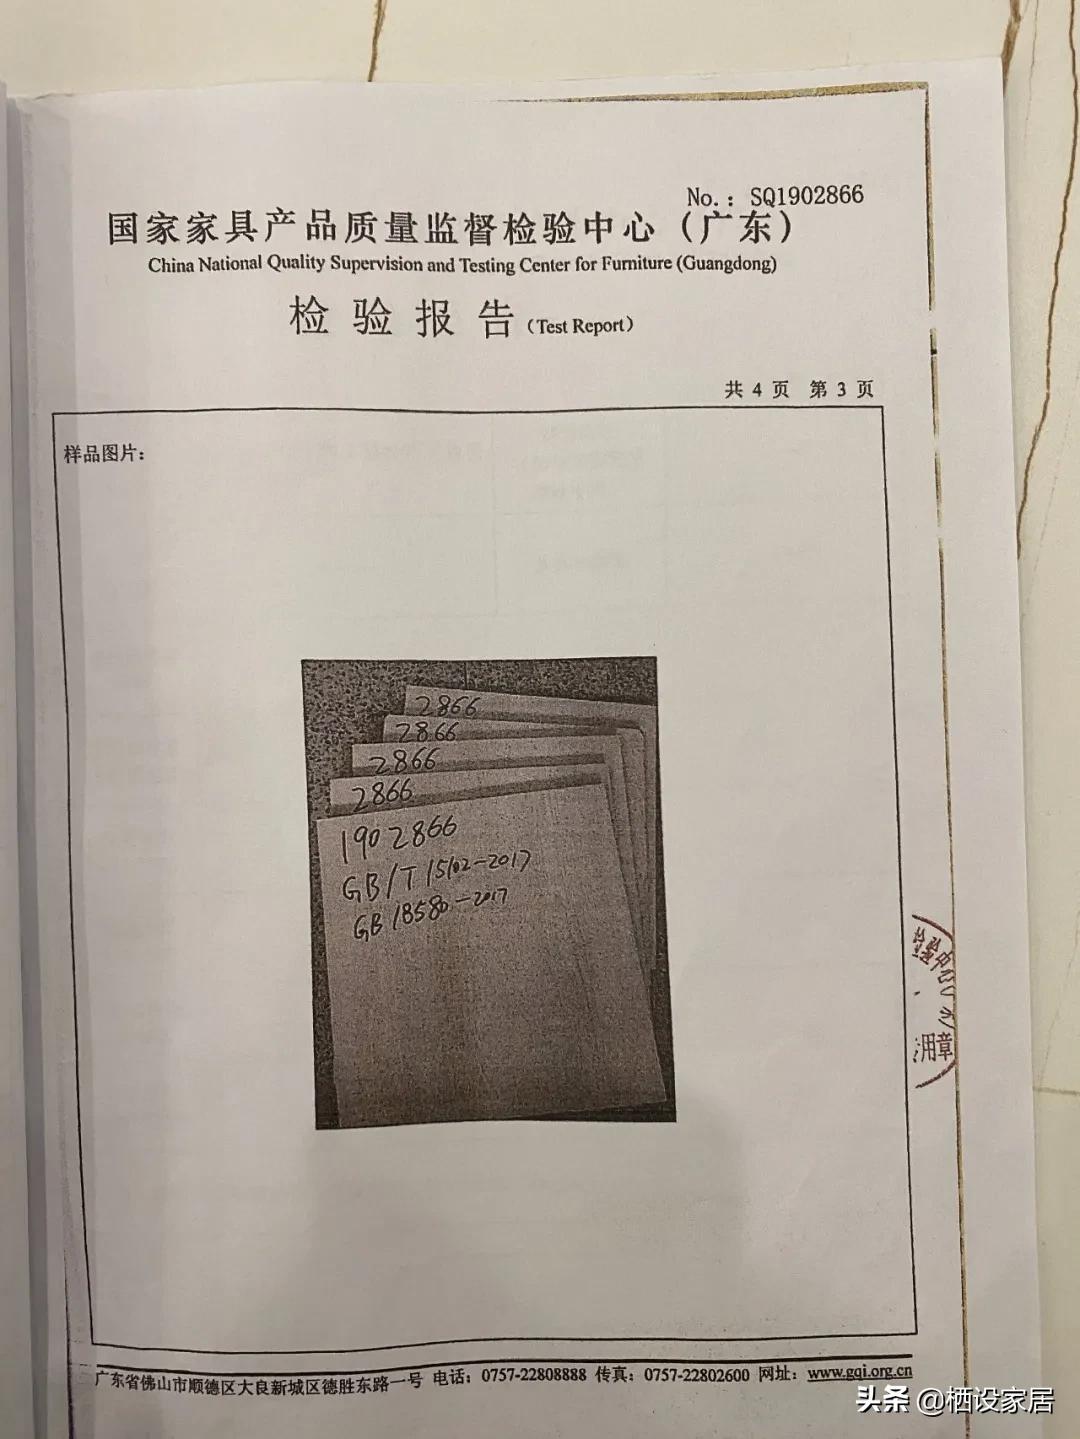 No.: SQ1902866
国家家具产品质量监督检验中心(广东)
China National Quality Supervision and Testing Center for Furniture (Guangdong)
检验报告(Test Report)
共 4 页 第 3 页
样品图片:
2866
2866
2866
2866
1902866
GB/T 15102-2017
GB 18580-2017
用章
广东省佛山市顺德区大良新城区德胜东路一号 电话: 0757-22808888 传真: 0757-22802600 网址: www.gqi.org.cn
头条 @栖设家居